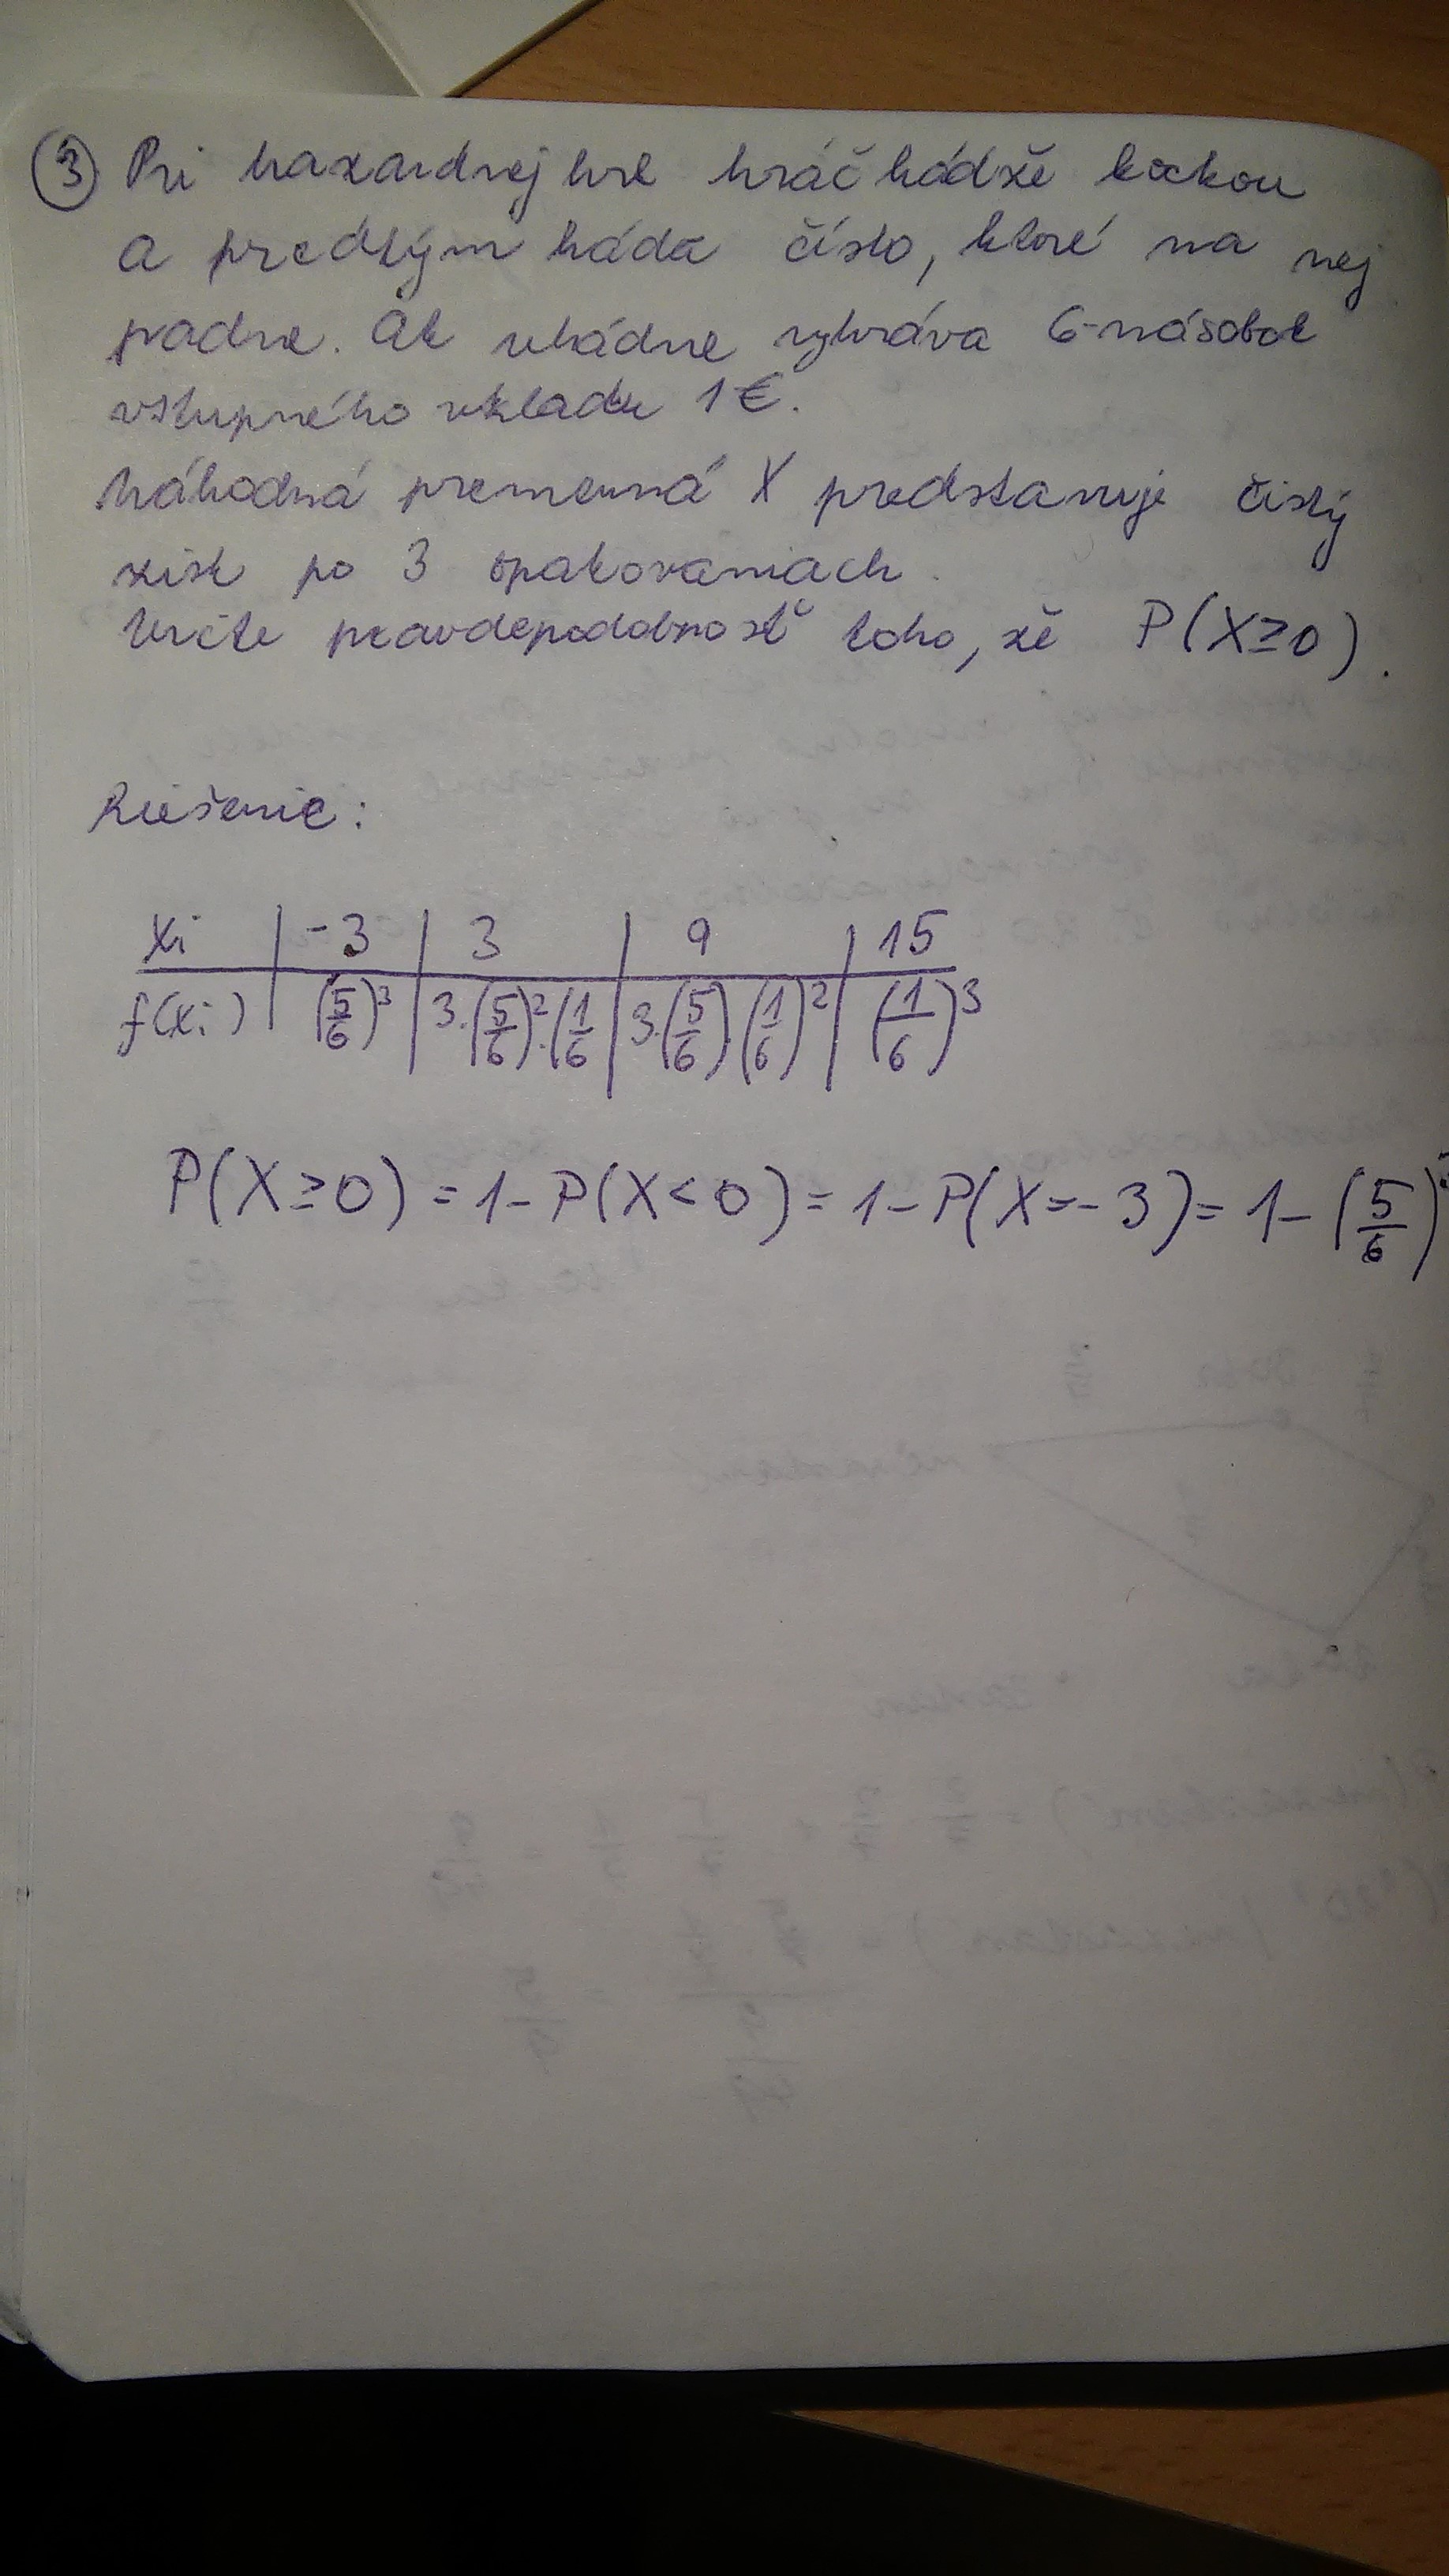 ③ Pri hazardnej hre hráč hádže kockou
a predtým háda číslo, ktoré na nej
padne. Ak uhádne vyhráva 6-násobok
vstupného vkladu 1€.
Náhodná premenná X predstavuje čistý
zisk po 3 opakovaniach.
Určte pravdepodobnosť toho, že P(X≥0).
Riešenie:
xi | -3 | 3 | 9 | 15
f(xi) | (5/6)³ | 3.(5/6)².(1/6 | 3.(5/6).(1/6)² | (1/6)³
P(X≥0) = 1-P(X<0) = 1-P(X=-3) = 1-(5/6)³